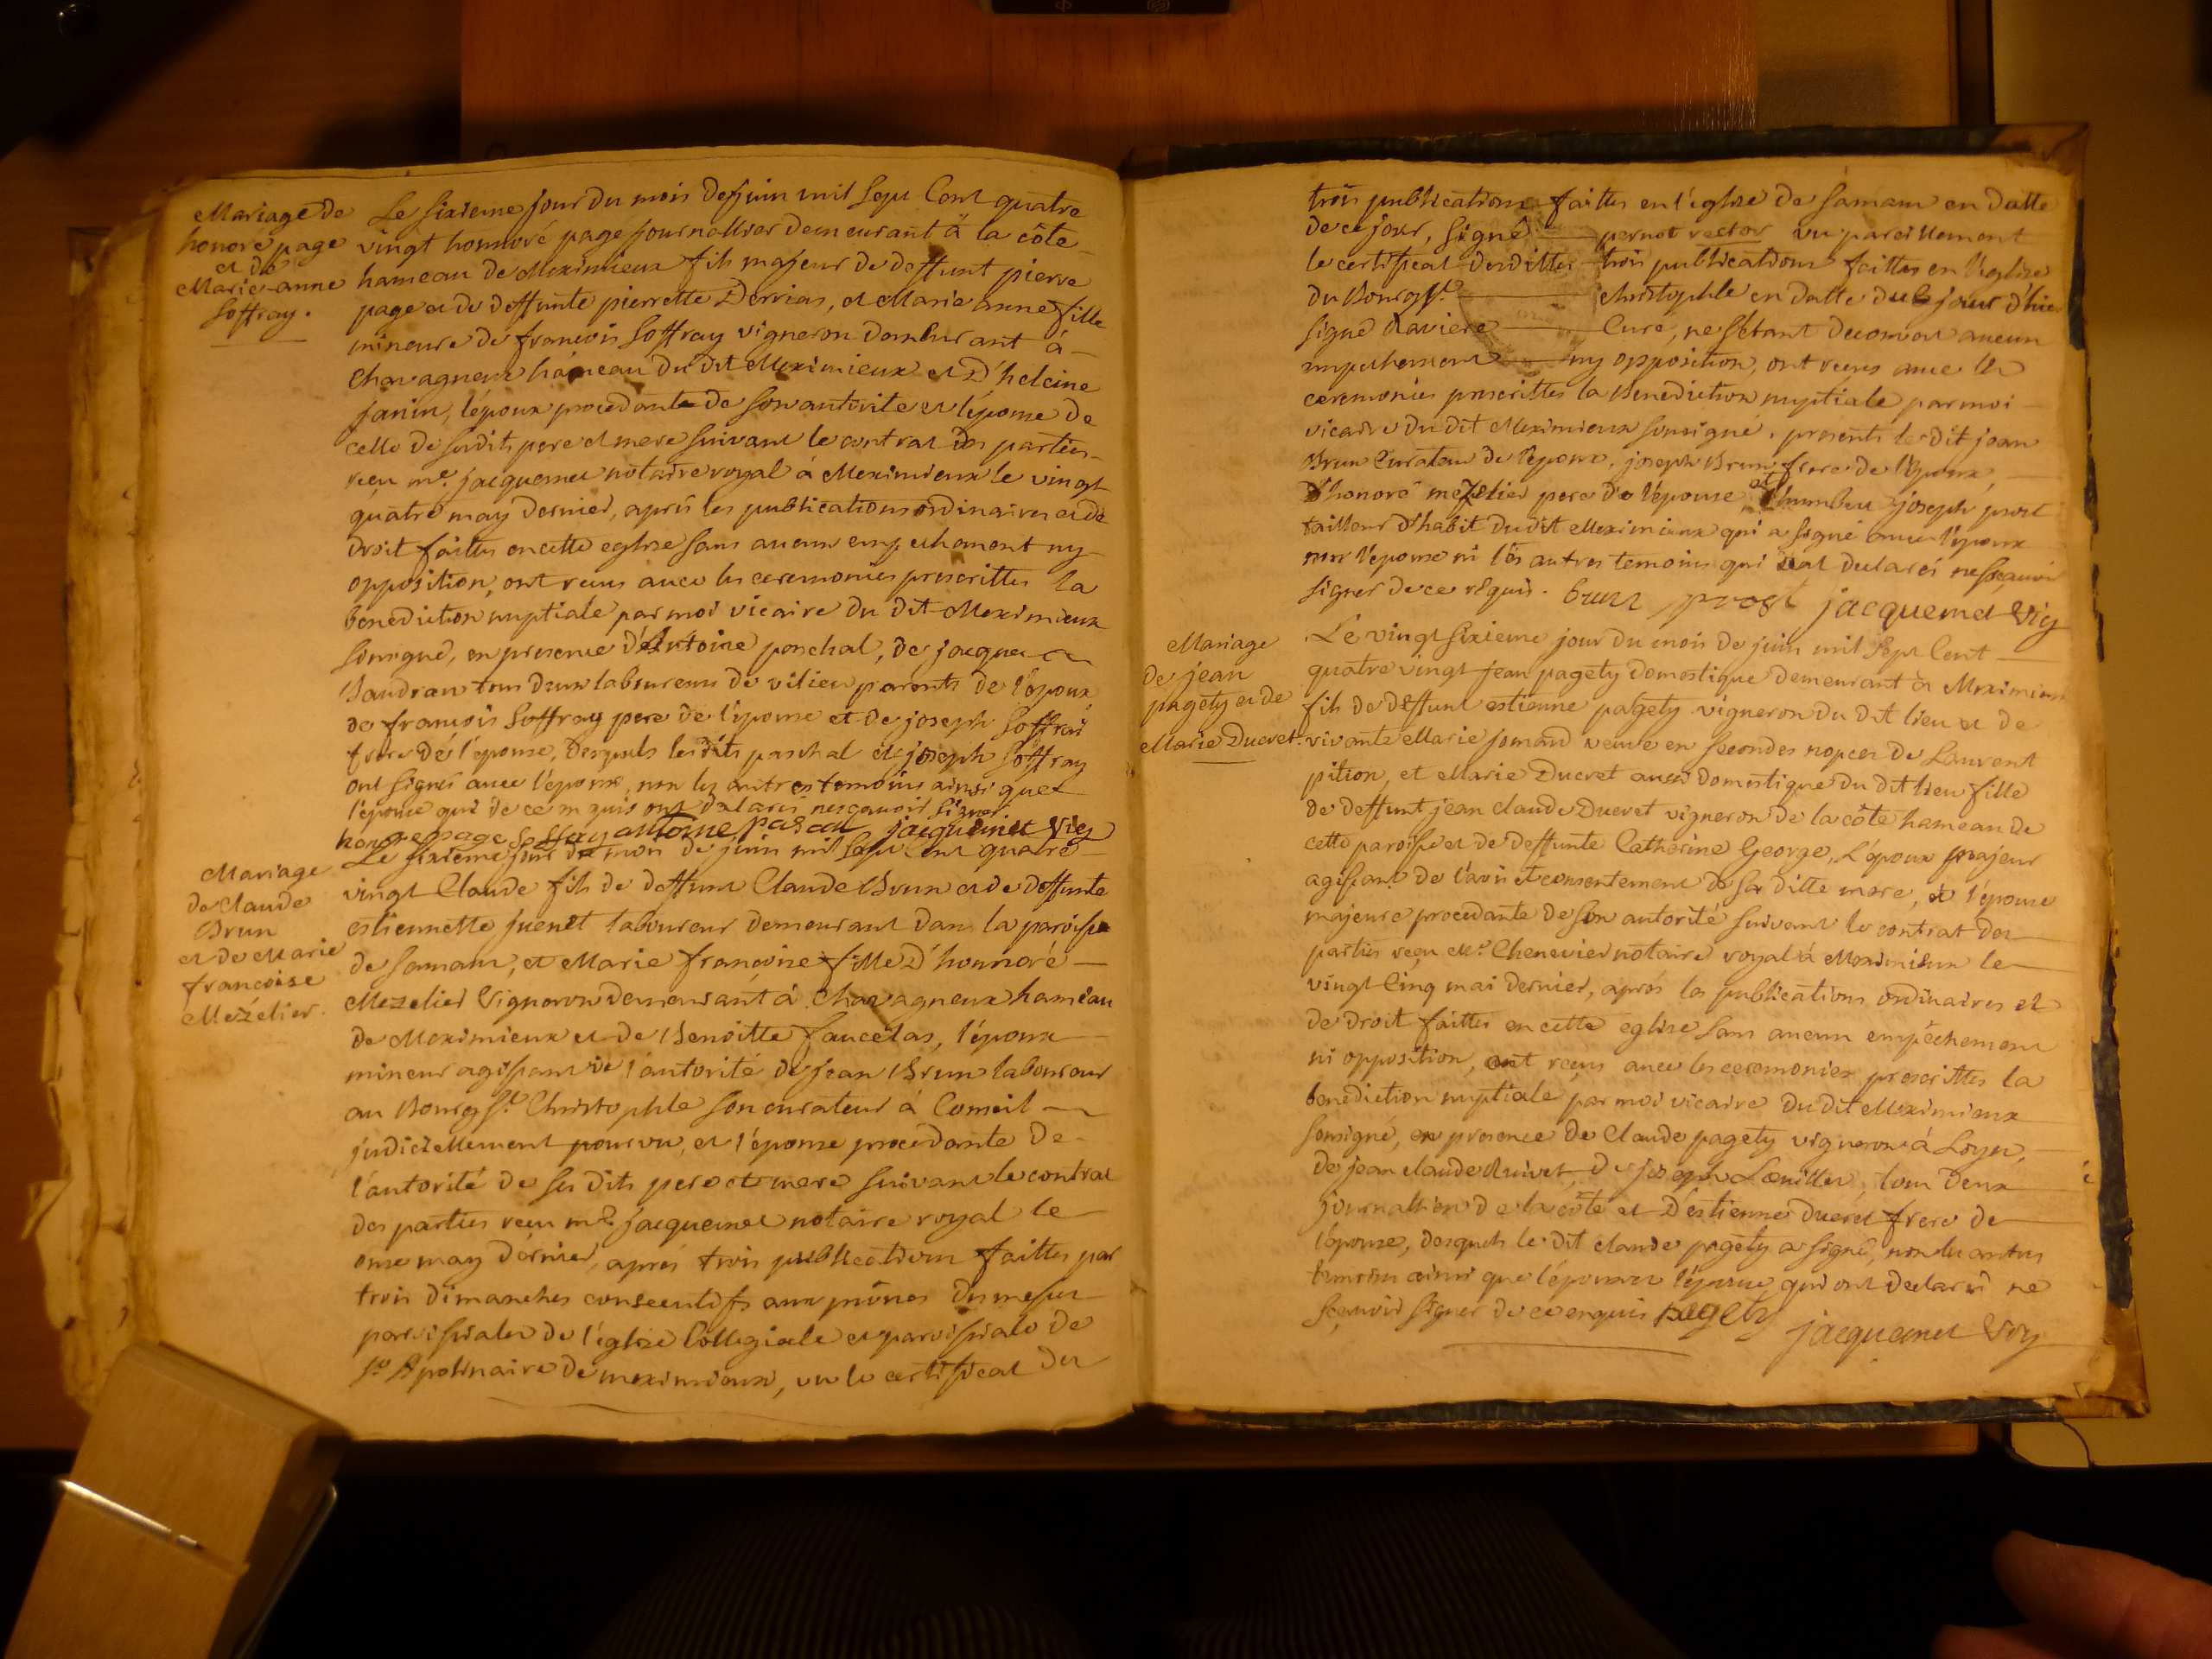 Mariage de
honoré page
et de
Marie-anne
Soffray.
Le sixieme jour du mois de juin mil sept Cent quatre
vingt honnoré page journallier demeurant à la côte
hameau de Meximieux fils majeur de deffunt pierre
page et de deffunte pierrette Dervias, et Marie anne fille
mineure de francois Soffray vigneron demeurant à
Chavagneux hameau du dit Meximieux et d'heleine
janin, l'époux procedant de son autorite et l'épouse de
celle de susdits pere et mere suivant le contrat des parties
reçu me. jacquemet notaire royal à Meximieux le vingt
quatre may dernier, après les publications ordinaires et de
droit faittes en cette eglise sans aucun empechement ny
opposition, ont recus avec les ceremonies prescrittes la
benediction nuptiale par moi vicaire du dit Meximieux
soussigné, en presence d'Antoine paschal, de jacques
Baudran tous deux laboureurs de vilieu parents de l'époux
de francois Soffray pere de l'épouse et de joseph Soffrai
frere de l'épouse, desquels les dits paschal et joseph Soffray
ont signés avec l'époux, non les autres temoins ainsi que
l'épouse qui de ce enquis ont declarés ne sçavoir signer
honore page Soffray antoine pascal jacquemet Vic
Mariage
de Claude
Brun
et de Marie
francoise
Mezélier.
Le sixieme jour du mois de juin mil sept Cent quatre
vingt Claude fils de deffunt Claude Brun et de deffunte
estiennette juenet laboureur demeurant dans la paroisse
de Samans, et Marie francoise fille d'honnoré
Mezelier Vigneron demeurant à Chavagneux hameau
de Meximieux et de Benoitte faucelas, l'époux
mineur agissant de l'autorité de jean Brun laboureur
au Bourg St. Christophle son curateur à Conseil
judiciellement pourvu, et l'épouse procedante de
l'autorité de ses dits pere et mere suivant le contrat
des parties reçu me. jacquemet notaire royal le
onze may dernier, après trois publications faittes par
trois dimanches consecutifs aux prônes des messes
paroissiales de l'église Collegiale et paroissiale de
St. Apolinaire de meximieux, vu le certificat des
trois publications faittes en l'église de Samans en datte
de ce jour, signé pernot rector vu pareillement
le certificat desdittes trois publications faittes en l'eglise
du Bourg St. christophle en datte du jour d'hier
signé Raviere Curé, ne s'etant decouvert aucun
empechement ny opposition, ont reçus avec les
ceremonies prescrittes la Benediction nuptiale par moi
vicaire du dit Meximieux soussigné, presents le dit jean
Brun Curateur de l'époux, joseph Brun frere de l'époux,
d'honoré mezelier pere de l'épouse et humbert joseph prost
tailleur d'habit du dit Meximieux qui a signé avec l'époux
non l'épouse ni les autres temoins qui ont declarés ne sçavoir
signer de ce requis. brun prost jacquemet Vic
Mariage
de jean
pagety et de
Marie Ducret.
Le vingt sixieme jour du mois de juin mil Sept Cent
quatre vingt jean pagety domestique demeurant à Meximieux
fils de deffunt estienne pagety vigneron du dit lieu et de
vivante Marie jomard veuve en secondes nopces de Laurent
pition, et Marie Ducret aussi domestique du dit lieu fille
de deffunt jean claude Ducret vigneron de la côte hameau de
cette paroisse et de deffunte Catherine George, L'époux majeur
agissant de l'avis et consentement de sa ditte mere, et l'épouse
majeure procedante de son autorité suivant le contrat des
parties reçu Me. Chenevier notaire royal à Meximieux le
vingt Cinq mai dernier, après les publications ordinaires et
de droit faittes en cette eglise sans aucun empêchement
ni opposition, ont reçus avec les ceremonies prescrittes la
benediction nuptiale par moi vicaire du dit Meximieux
sousigné, en presence de Claude pagety vigneron à Loyes,
de jean claude Ruivet, de joseph tous deux
journaliers de la côte et d'estienne ducret frere de
l'épouse, desquels le dit claude pagety a signé, non les autres
temoins ainsi que l'époux et l'épouse qui ont declarés ne
sçavoir signer de ce enquis pagety
jacquemet Vic